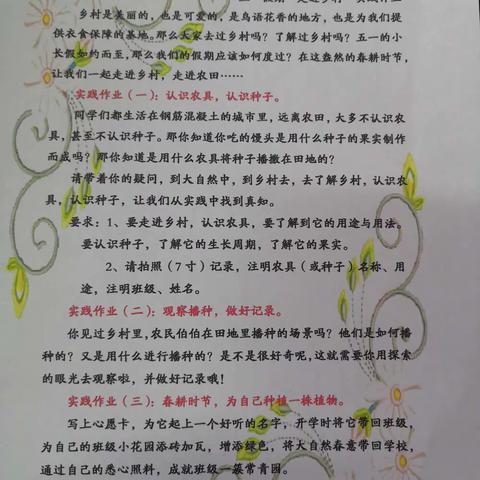 乡村是美丽的，也是可爱的，是鸟语花香的地方，也是为我们提
供衣食保障的基地。那么大家去过乡村吗？了解过乡村吗？五一的小
长假如约而至，那么我们的假期应该如何度过？在这盎然的春耕时节，
让我们一起走进乡村，走进农田……
实践作业（一）：认识农具，认识种子。
同学们都生活在钢筋混凝土的城市里，远离农田，大多不认识农
具，甚至不认识种子。那你知道你吃的馒头是用什么种子的果实制作
而成吗？那你知道是用什么农具将种子播撒在田地的？
请带着你的疑问，到大自然中，到乡村去，去了解乡村，认识农
具，认识种子，让我们从实践中找到真知。
要求：1、要走进乡村，认识农具，要了解到它的用途与用法。
要认识种子，了解它的生长周期，了解它的果实。
2、请拍照（7寸）记录，注明农具（或种子）名称、用
途，注明班级、姓名。
实践作业（二）：观察播种，做好记录。
你见过乡村里，农民伯伯在田地里播种的场景吗？他们是如何播
种的？又是用什么进行播种的？是不是很好奇呢，这就需要你用探索
的眼光去观察啦，并做好记录哦！
实践作业（三）：春耕时节，为自己种植一株植物。
写上心愿卡，为它起上一个好听的名字，开学时将它带回班级，
为自己的班级小花园添砖加瓦，增添绿色，将大自然春意带回学校，
通过自己的悉心照料，成就班级一簇常青园。